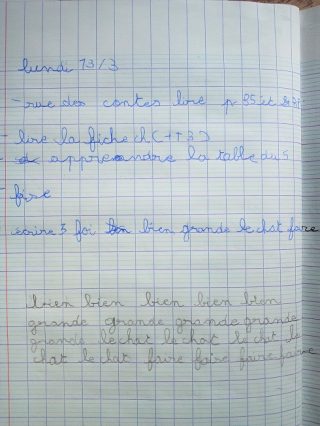 lundi 13/3
- rue des contes lire p 35 et
- lire la fiche ch (+ + 3)
- apprendre la table du 5
- faire
écrire 3 foi bien grande le chat faire
bien bien bien bien bien
grande grande grande grande
grande le chat le chat le chat le
chat le chat faire faire faire faire